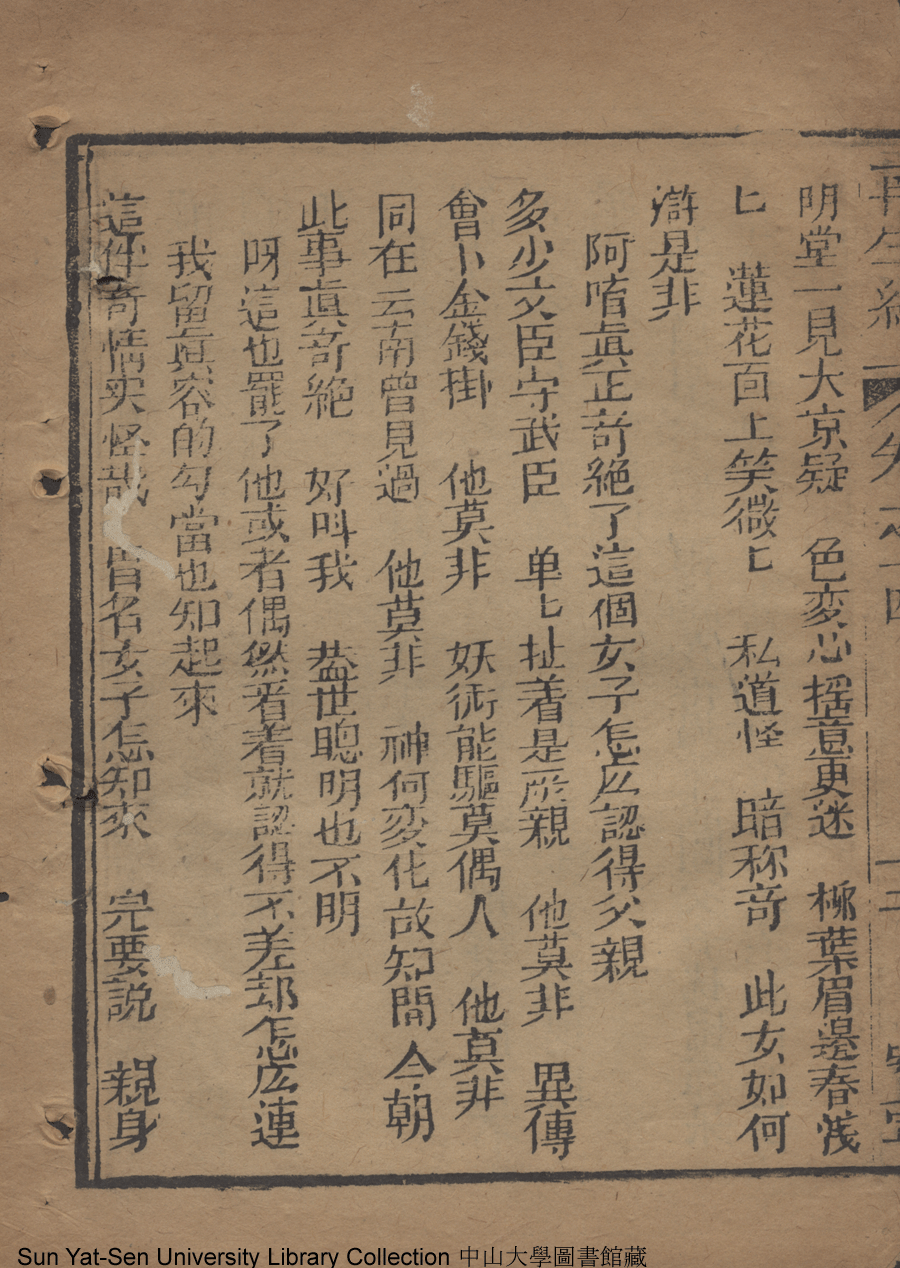 再生緣
卷之十四
阴堂一見大京疑　色変心摇意更迷　柳葉眉邊春
匕　蓮花面上笑微匕　私道怪　暗称竒　此女如何
是非
阿唷眞正竒絕了這個女子怎庅認得父親
多少文臣守武臣　单匕扯着是所親　他莫非　異傳
會卜金錢掛　他莫非　妖術能驅莫偶人　他莫非
同在云南曾見過　他莫非　神何変化故知間　仒朝
此事眞竒絕　好呌我　葢世聰明也不明
呀這也罷了他或者偶然看着就認得不差却怎庅連
我留眞容的勾當也知起來
這件竒情实怪哉　冒名女子怎知來　完要説　親身
Sun Yat-Sen University Library Collection 中山大學圖書館藏